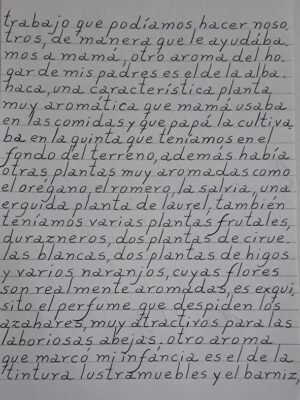 trabajo que podíamos hacer noso
tros, de manera que le ayudába.
mos a mamá, otro aroma del ho.
gar de mis padres es el de la alba.
haca, una característica planta
muy aromática que mamá usaba
en las comidas y que papá la cultiva.
ba en la quinta que teníamos en el
fondo del terreno, además había
otras plantas muy aromadas como
el orégano, el romero, la salvia, una
erguida planta de laurel, también
teníamos varias plantas frutales,
durazneros, dos plantas de cirue.
las blancas, dos plantas de higos
y varios naranjos, cuyas flores
son realmente aromadas, es exqui,
sito el perfume que despiden los
azahares, muy atractivos para las
laboriosas abejas. otro aroma
que marcó mi infáncia es el de la
tintura lustramuebles y el barniz,